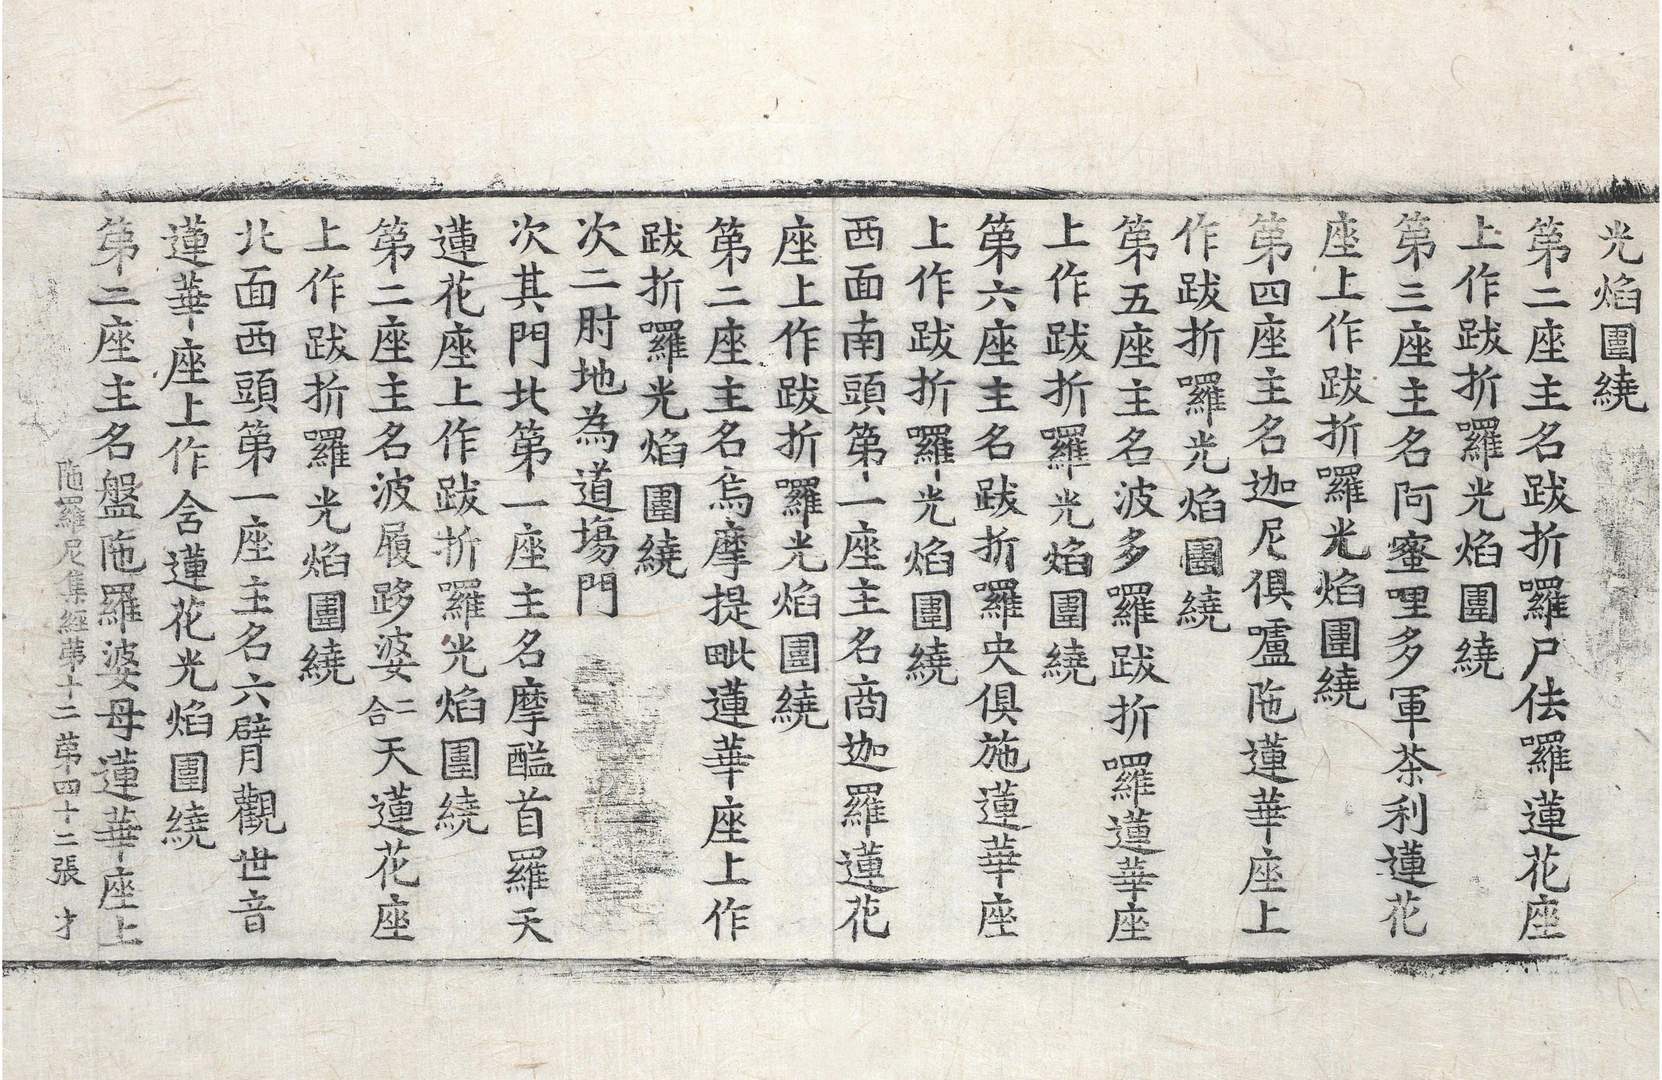 光焰圍繞
第二座主名跋折囉尸佉囉蓮花座
上作跋折囉光焰圍繞
第三座主名阿蜜哩多軍荼利蓮花
座上作跋折囉光焰圍繞
第四座主名迦尼俱嚧陁蓮華座上
作跋折囉光焰圍繞
第五座主名波多囉跋折囉蓮華座
上作跋折囉光焰圍繞
第六座主名跋折囉央俱施蓮華座
上作跋折囉光焰圍繞
西面南頭第一座主名商迦羅蓮花
座上作跋折囉光焰圍繞
第二座主名烏摩提毗蓮華座上作
跋折囉光焰圍繞
次二肘地為道塲門
次其門北第一座主名摩醯首羅天
蓮花座上作跋折囉光焰圍繞
第二座主名波履跢婆二合天蓮花座
上作跋折囉光焰圍繞
北面西頭第一座主名六臂觀世音
蓮華座上作含蓮花光焰圍繞
第二座主名盤陁羅婆母蓮華座上
陁羅尼集經第十二 第四十二張 才